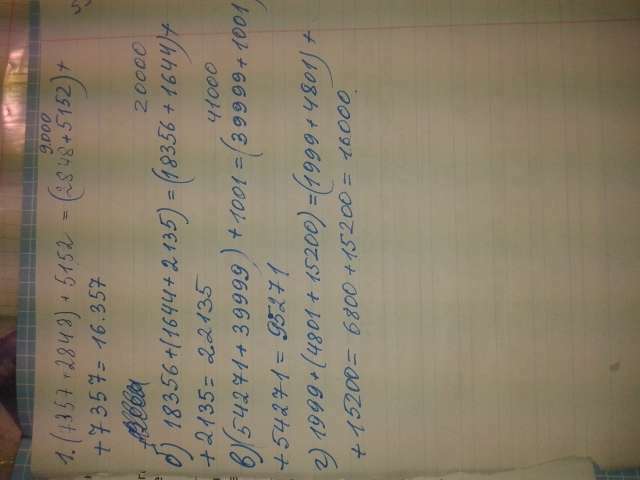 9000
1. (7357+2848)+5152 = (2848+5152)+
+7357=16.357
20000
б) 18356+(1644+2135)=(18356+1644)+
+2135=22135
41000
в)(54271+39999)+1001=(39999+1001)
+54271=95271
г) 1999+(4801+15200)=(1999+4801)+
+15200=6800+15200=16000.